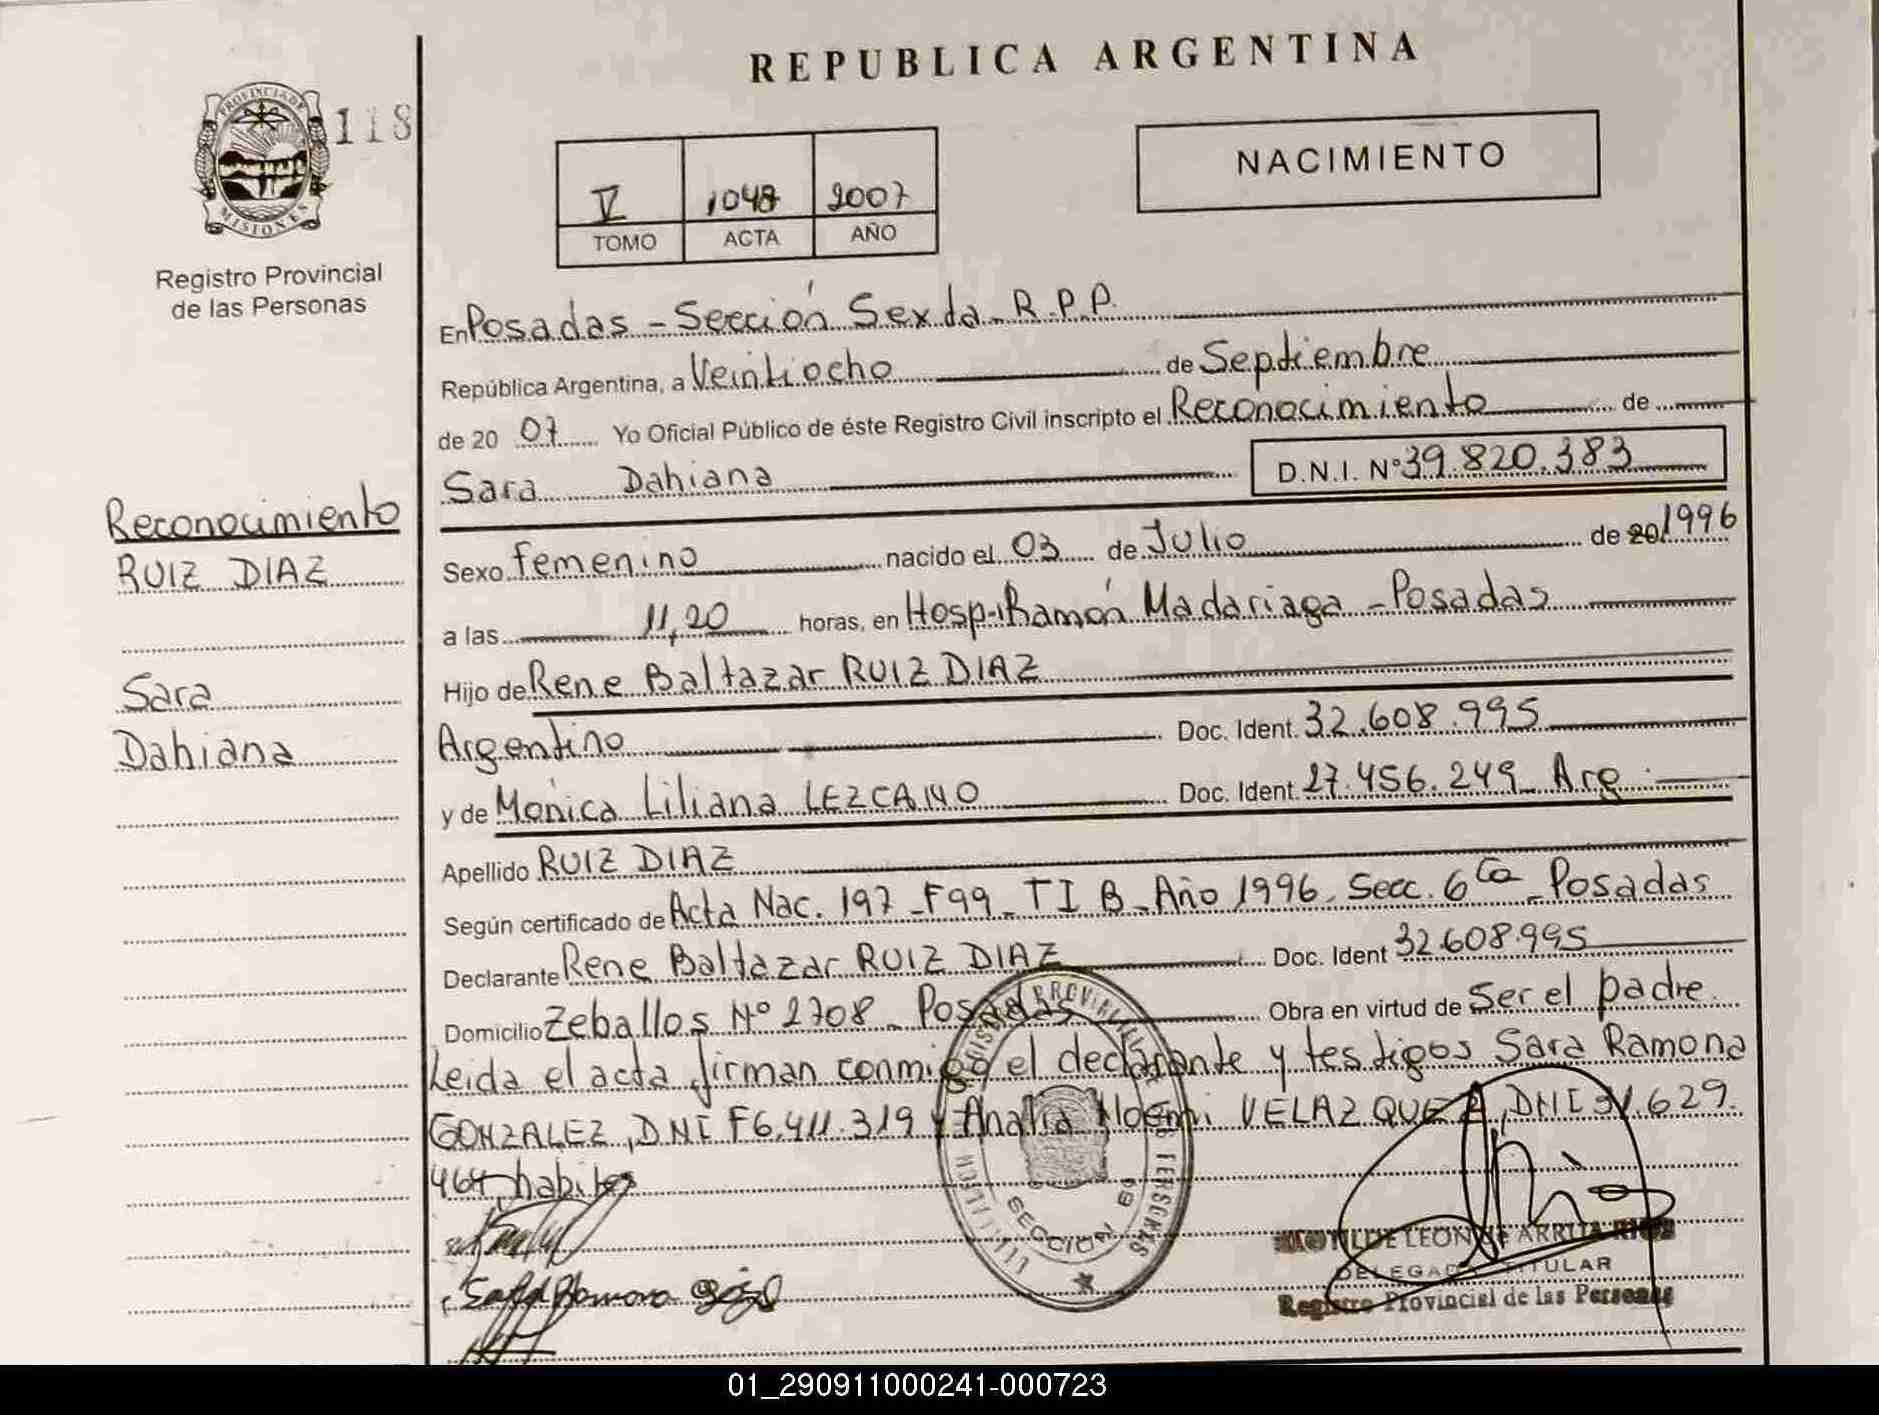 REPUBLICA ARGENTINA
PROVINCIA DE
MISIONES
118
Registro Provincial
de las Personas
V 1048 2007
TOMO ACTA AÑO
NACIMIENTO
En Posadas - Sección Sexta - R.P.P.
República Argentina, a Veintiocho de Septiembre
de 20 07 Yo Oficial Público de éste Registro Civil inscripto el Reconocimiento de
Sara Dahiana D.N.I. Nº 39.820.383
Reconocimiento
RUIZ DIAZ
Sara
Dahiana
Sexo femenino nacido el 03 de Julio de 20 1996
a las 11,20 horas, en Hosp. Ramón Madariaga - Posadas
Hijo de Rene Baltazar RUIZ DIAZ
Argentino Doc. Ident. 32.608.995
y de Mónica Liliana LEZCANO Doc. Ident. 27.456.249 - Arg.
Apellido RUIZ DIAZ
Según certificado de Acta Nac. 197 - F99 - T I B - Año 1996. Secc. 6ta - Posadas
Declarante Rene Baltazar RUIZ DIAZ Doc. Ident 32.608.995
Domicilio Zeballos Nº 2708 - Posadas Obra en virtud de Ser el padre.
Leida el acta, firman conmigo el declarante y testigos Sara Ramona
GONZALEZ, DNI F6.411.319 y Analia Noemi VELAZQUEZ, DNI 31.629.
464, habiles
Sara Ramona
SECCION 6ª
LEON DE ARRUA RIOS
DELEGADA TITULAR
Registro Provincial de las Personas
01_290911000241-000723